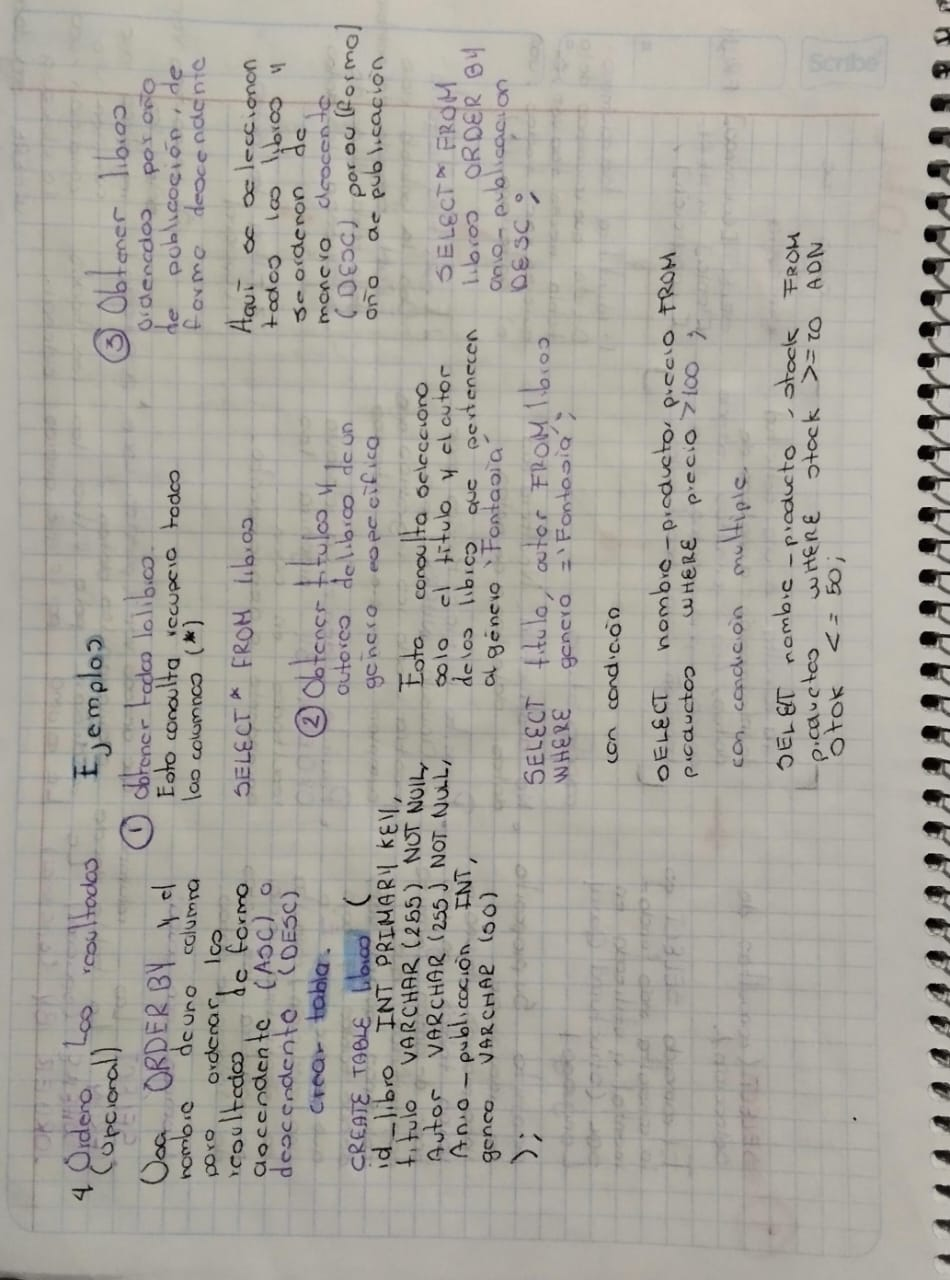 4 Ordena Los resultados
(Opcional)
Usa ORDER BY y el
nombre de una columna
para ordenar los
resultados de forma
ascendente (ASC) o
descendente (DESC)
crear tabla.
CREATE TABLE libros (
id_libro INT PRIMARY KEY,
titulo VARCHAR (255) NOT NULL,
Autor VARCHAR (255) NOT NULL,
Anio-publicación INT,
genero VARCHAR (50)
);
Ejemplos
① Obtener todos los libros.
Esta consulta recupera todas
las columnas (*)
SELECT * FROM libros
② Obtener títulos y
autores de libros de un
género específica
Esta consulta selecciona
solo el título y el autor
de los libros que pertenecen
al género 'Fantasía'
SELECT titulo, autor FROM libros
WHERE genero = 'Fantasía';
con condición
SELECT nombre-producto, precio FROM
productos WHERE precio >100 ;
con condición multiple.
SELECT nombre-producto, stock FROM
productos WHERE stock >=20 ADN
Stok <= 50;
③ Obtener libros
ordenados por año
de publicación, de
forma descendente
Aquí se seleccionan
todos los libros y
se ordenan de
manera descente
(DESC) para u(forma)
año de publicación
SELECT * FROM
libros ORDER BY
anio-publicación
DESC;
Scribe